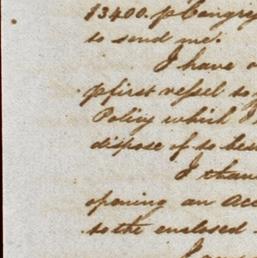 13400. p Congress
to send me.
I have
p first vessel to
Policy which I
dispose of to best
I than
opening an Acc
to the enclosed